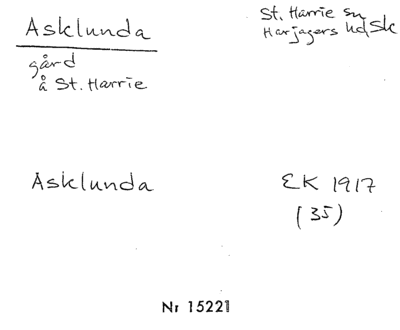 Asklunda
St. Harrie sn
Harjagers hd Sk
gård
å St. Harrie
Asklunda
EK 1917
(35)
Nr 15221